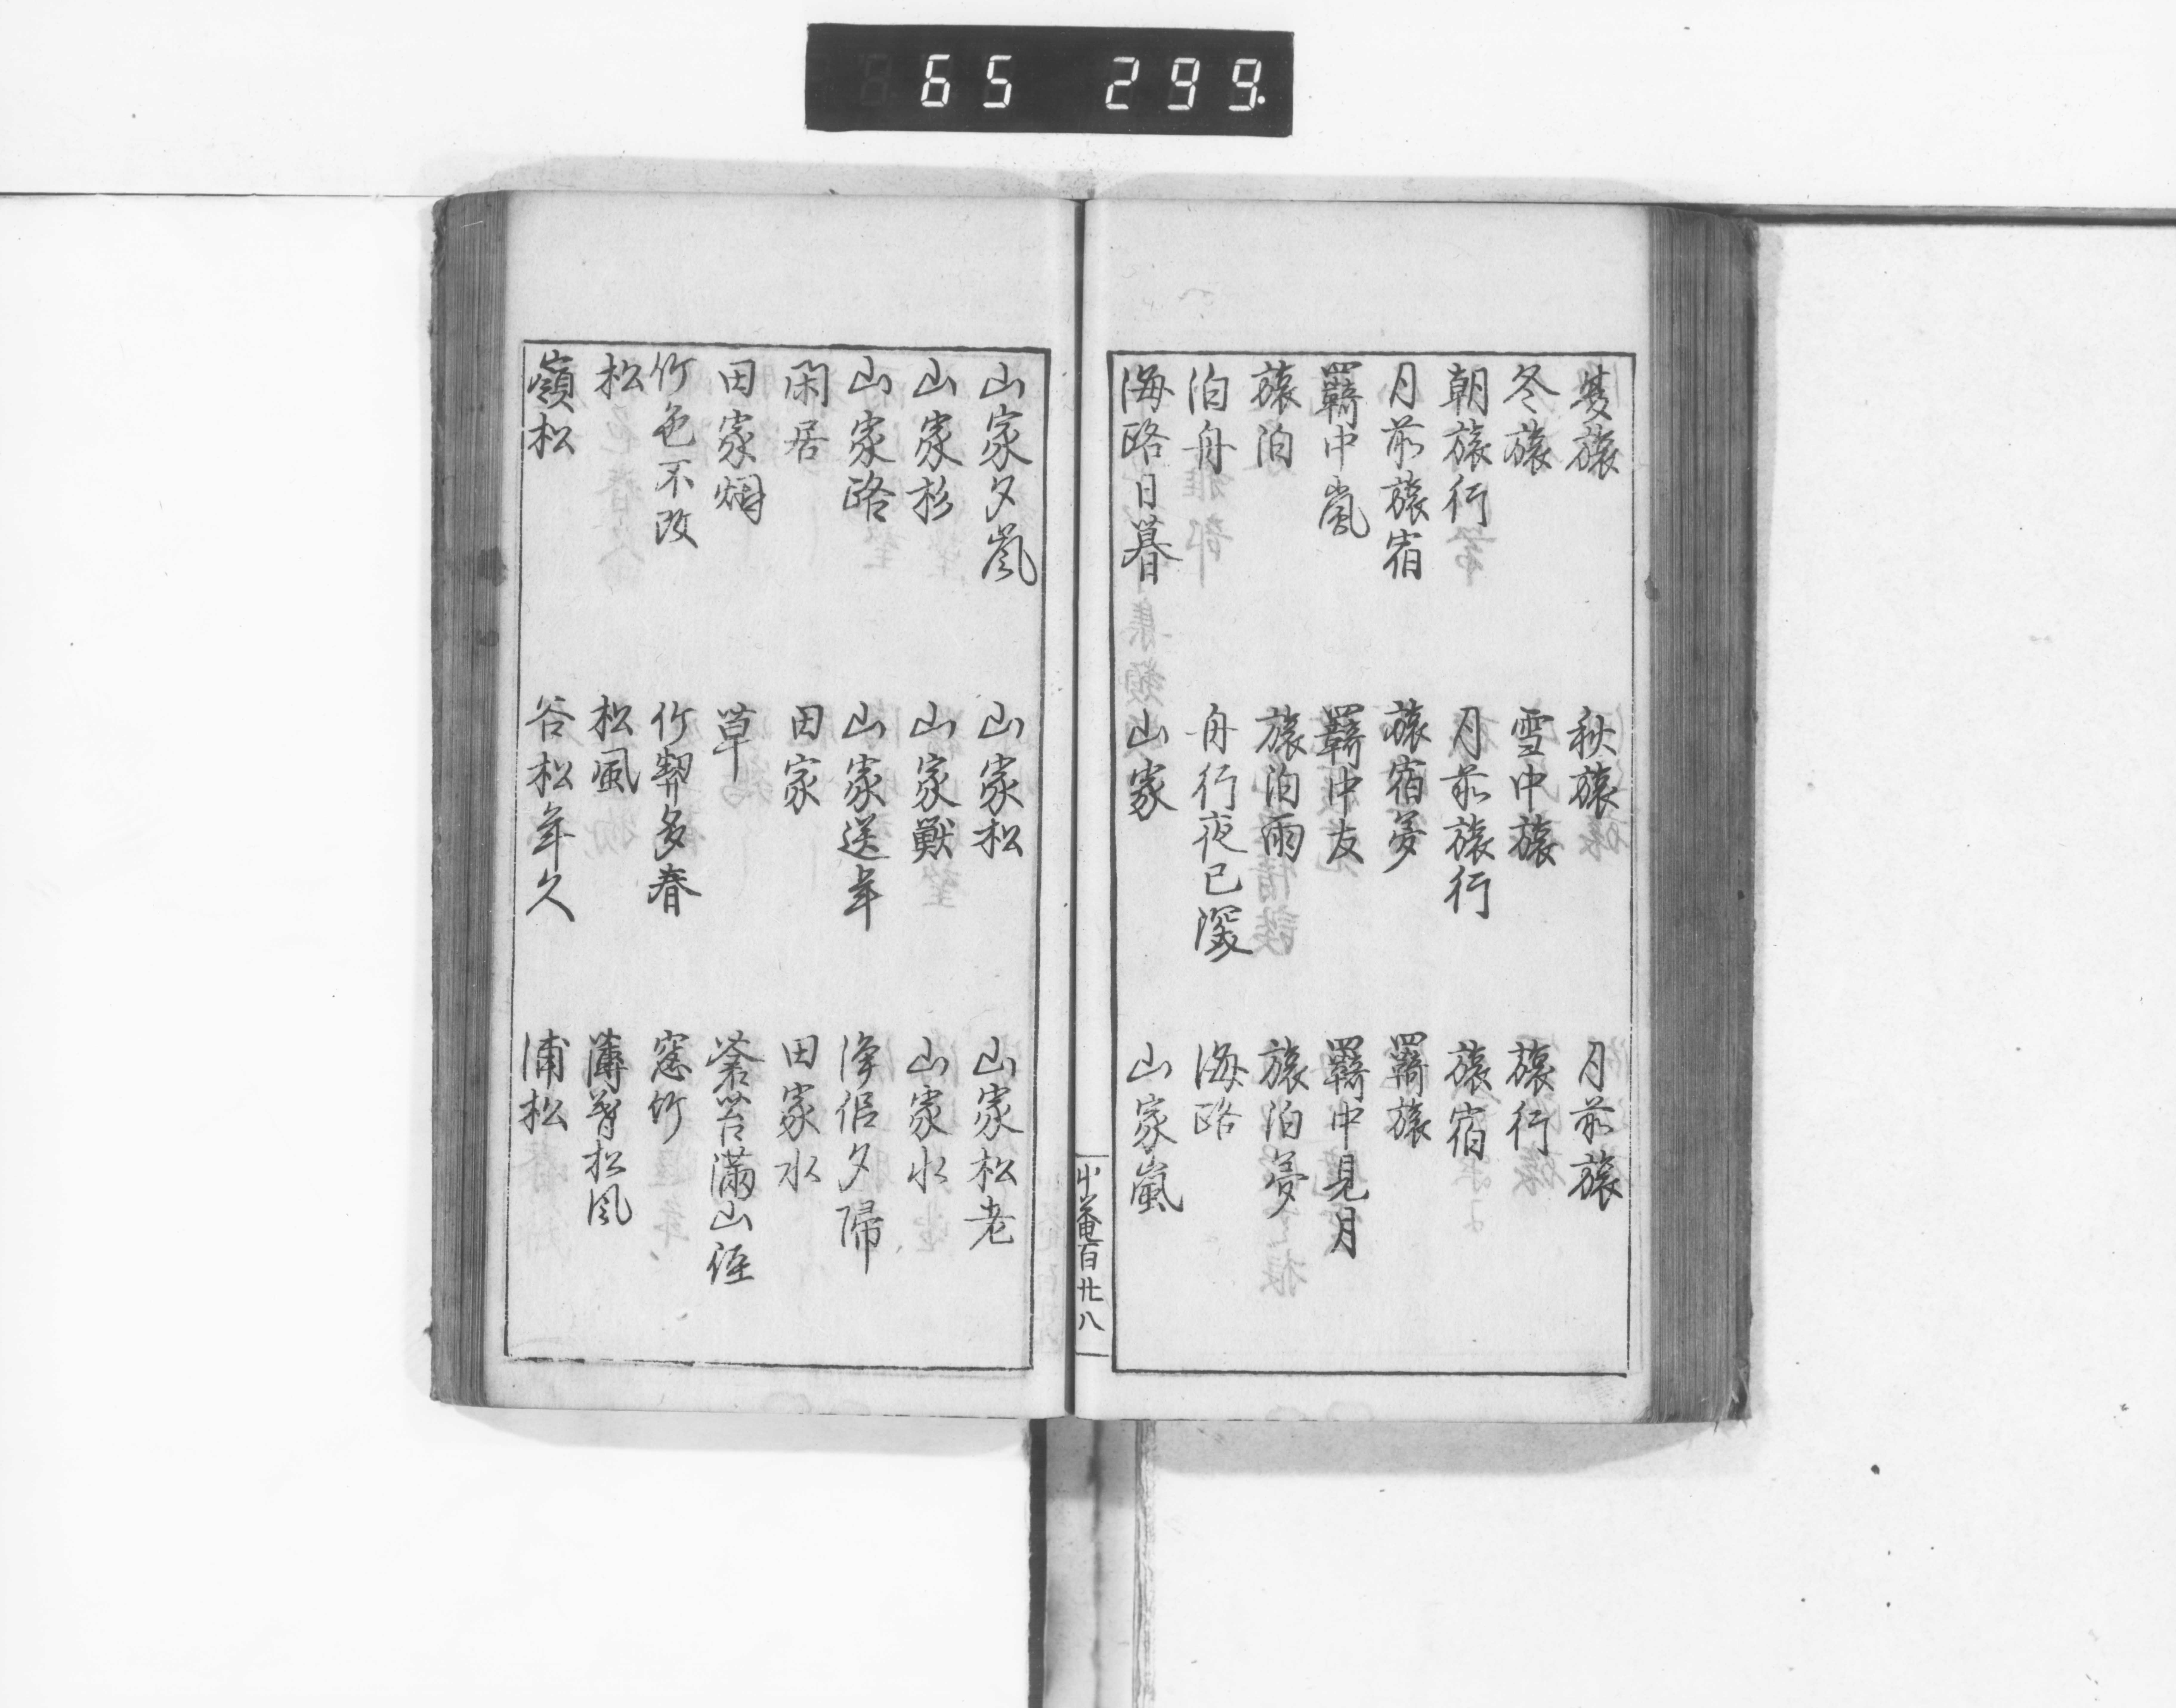 65 299.
夏旅 秋旅 月前旅
冬旅 雪中旅 旅行
朝旅行 月前旅行 旅宿
月前旅宿 旅宿夢 羇旅
羇中嵐 羇中友 羇中見月
旅泊 旅泊雨 旅泊夢
泊舟 舟行夜已深 海路
海路日暮 山家 山家嵐
草菴百廿八
山家夕嵐 山家松 山家松老
山家杉 山家獣 山家水
山家路 山家送年 浄侶夕帰
閑居 田家 田家水
田家烟 草 蒼苔満山径
竹色不改 竹契多春 窓竹
松 松風 薄暮松風
嶺松 谷松年久 浦松